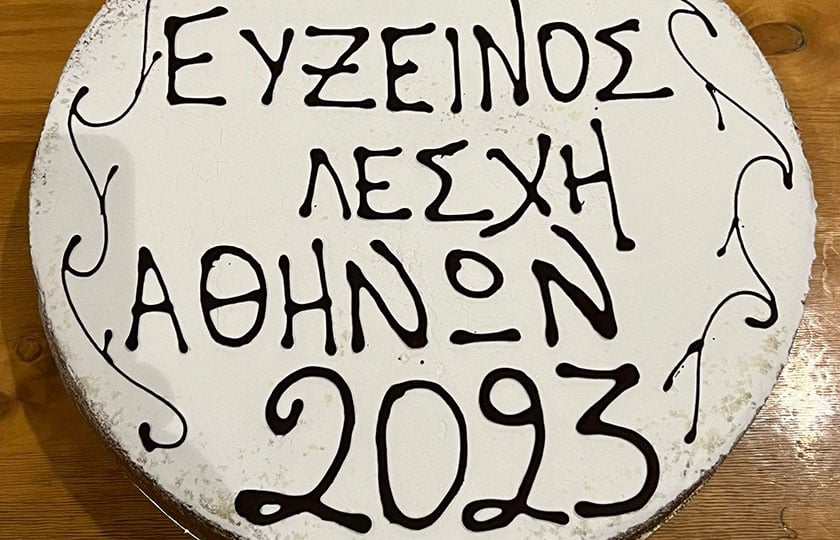 ΕΥΞΕΙΝΟΣ
ΛΕΣΧΗ
ΑΘΗΝΩΝ
2023